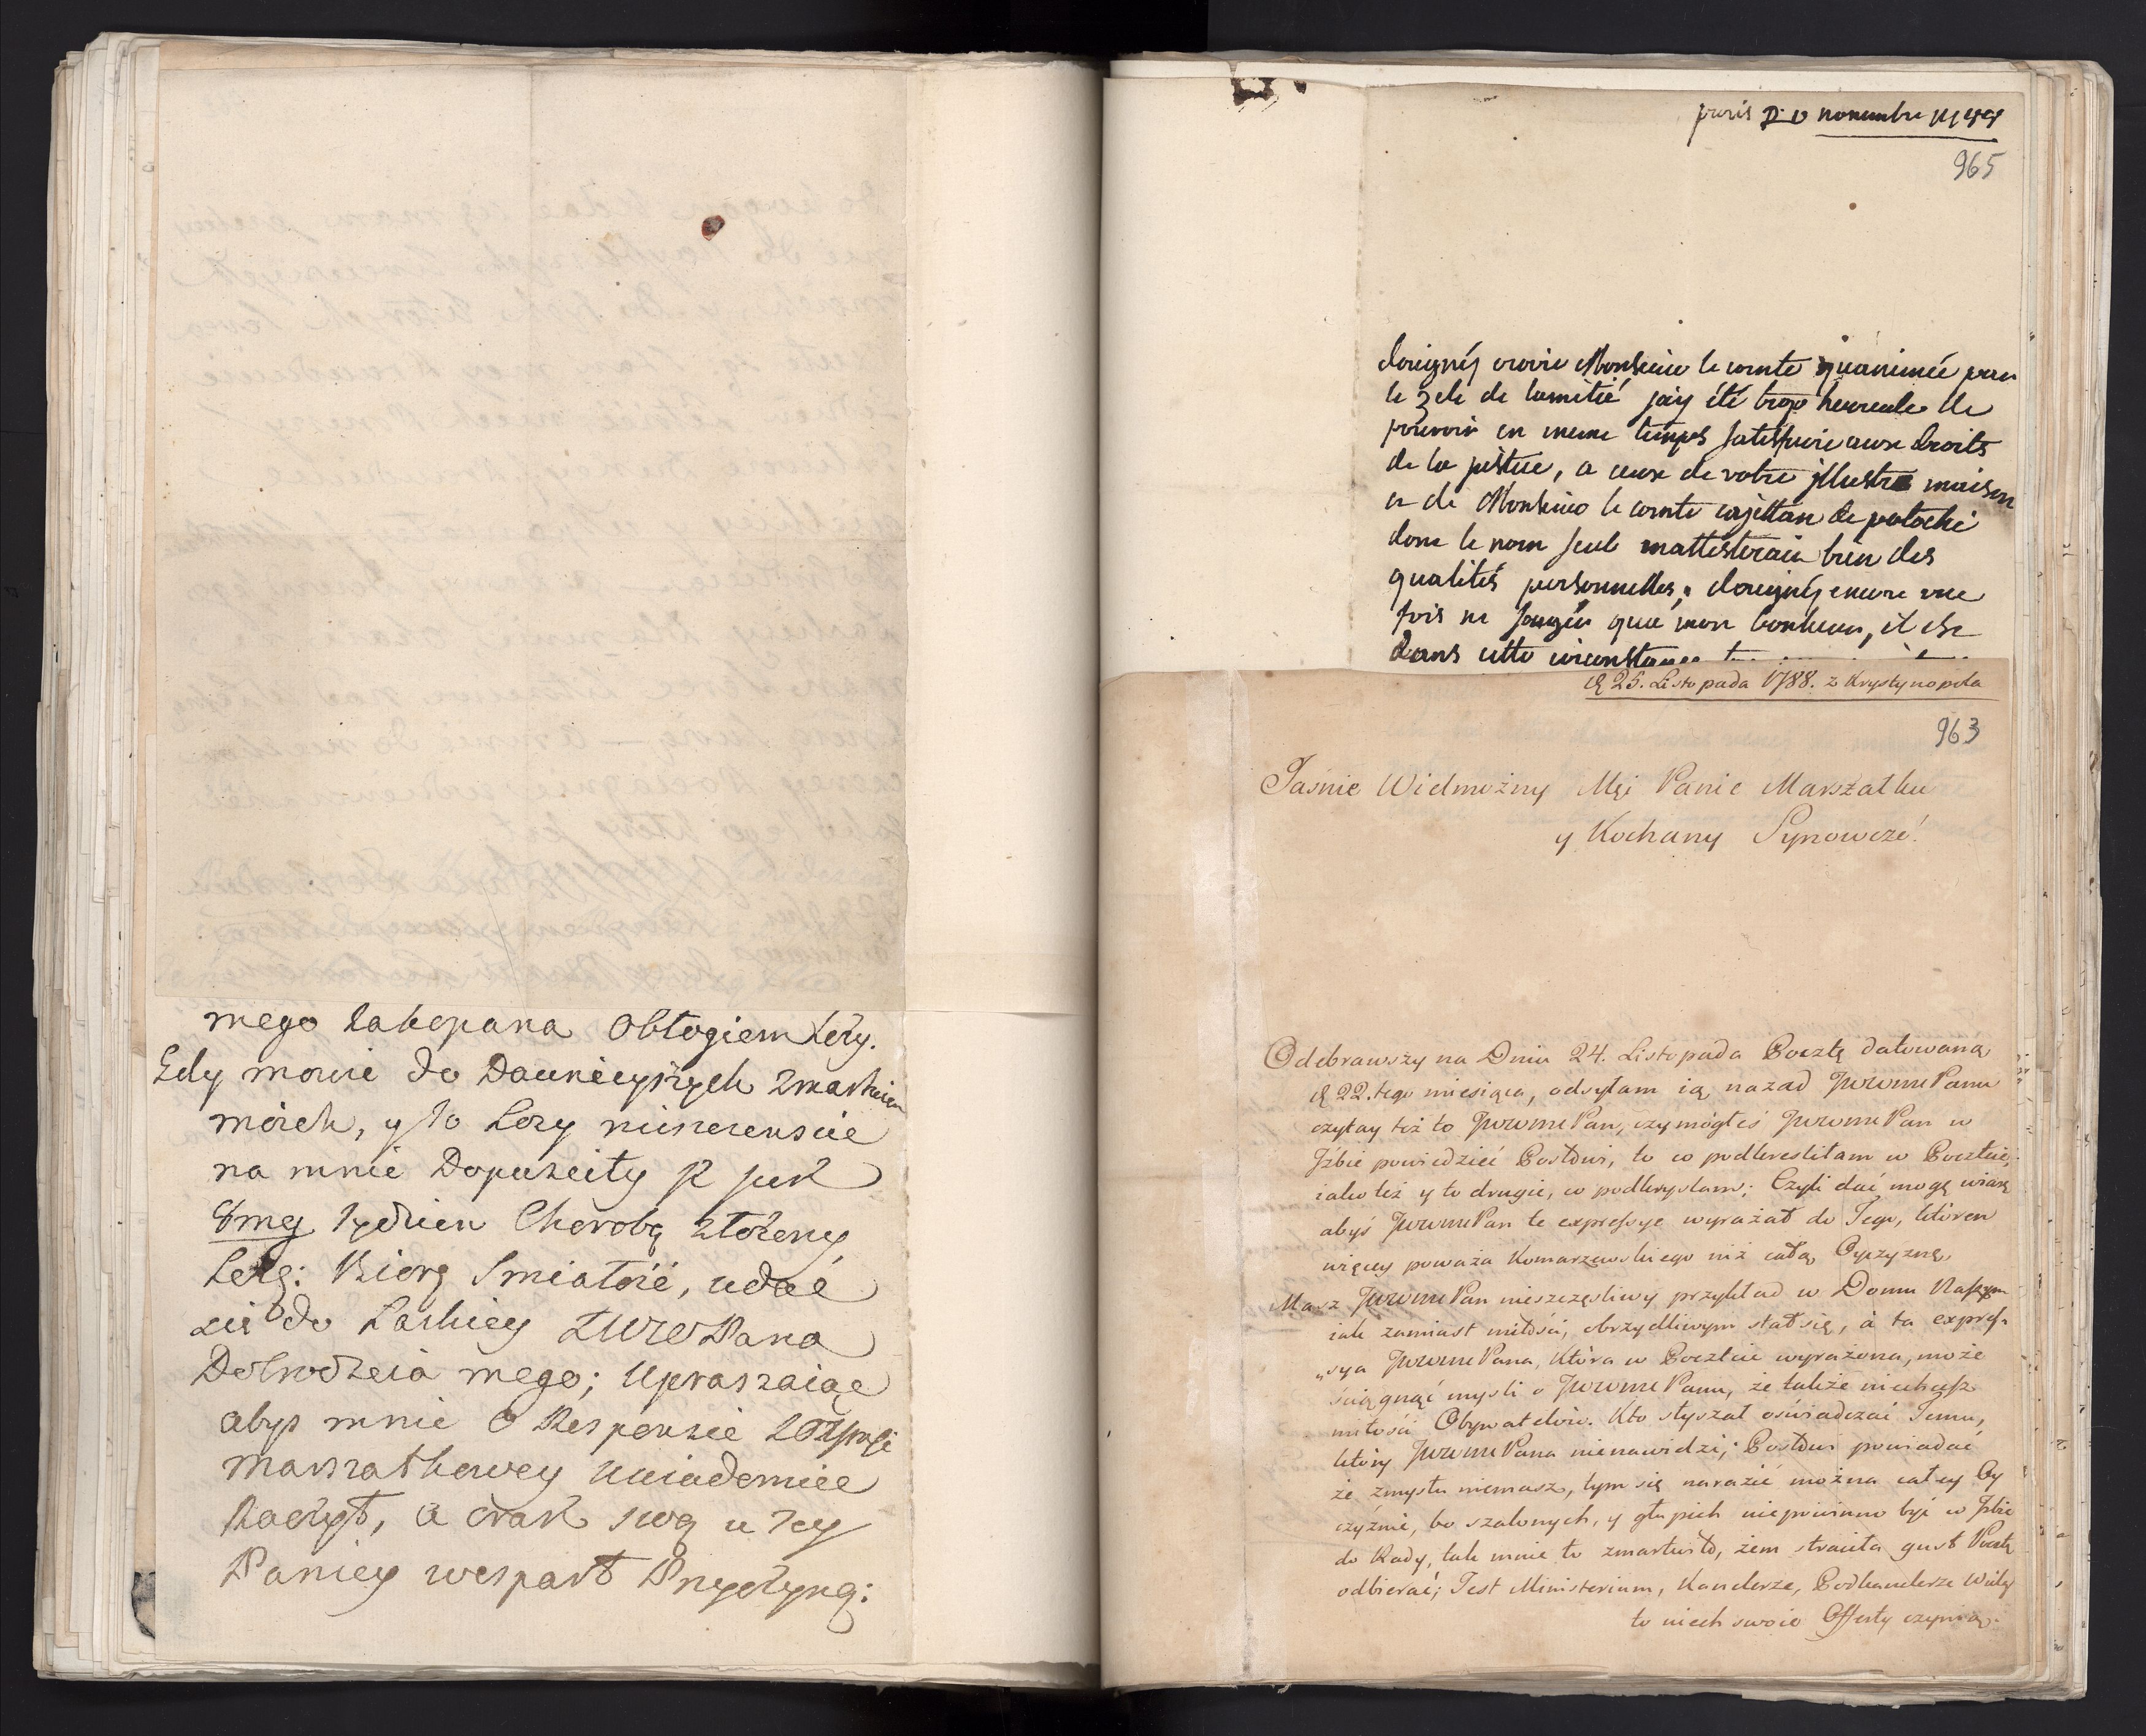 mego Zakopana Obłogiem Leży.
Gdy mowie do Dawnieyszych Zmartwien
moich, y to Losy nieszczensne
na mnie Dopuscity iż iuż
8my Tydzien Chorobą złożony
Leżę: Biorę Smiałość, udać
się do Laskiey JWW Pana
Dobrodzeia mego; Upraszaiąc
abys mnie o Responsie
Marszałkowey uwiadomic
Raczył, a oraz swą u Tey
Paniey wesparł Przyczyną:
paris novembre
965
daignés croire Monsieur le comte quanimée par
le zele de lamitié jay été trop heureuse de
pouvoir en meme temps satisfaire aux droits
de la justice, a ceux de votre jllustre maison
et de Monsieur le comte cajettan de potocki
dont le nom seul mattesterait bien des
qualités personnelles, daignés encore une
fois ne songer qua mon bonheur, il est
dans cette circonstance
d 25. Listopada 1788. z Krystynopola
963
Jasnie Wielmożny Mći Panie Marszałku
y Kochany Synowcze!
Odebrawszy na Dniu 24. Listopada Pocztę datowaną
d 22. tego miesiąca, odsyłam ią nazad JWWmPanu
czytay też to JWWmPan, czy mógłeś JWWmPan w
Jźbie powiedzieć Postom, to co podkreslitam w Poczcie,
iako też y to drugie, co podkryslam; Czyli dać mogę wiarę
abyś JWWmPan te expressye wyrażał do Tego, ktoren
więcey poważa Komarzewskiego niż całą Oyczyznę,
Masz JWWmPan nieszczęsliwy przykład w Domu Naszym
iak zamiast miłosci, obrzydliwym stał się, à ta expres-
„sya JWWmPana, Która w Poczcie wyrażona, może
sciągnąć mysli o JWWmPanu, że także niechcesz
miłosci Obywatelów. Kto słyszał oświadczać Temu,
który JWWmPana nienawidzi; Postom powiadać
że zmysłu niemasz, tym się narazić można całey Oy
czyznie, bo szalonych, y głupich niepowinno być w Jzbie
do Rady, tak mnie to zmartwiło, żem straciła gust Pocztę
odbierać; Jest Ministerium, Kanclerze, Podkanclerze
to niech swoie Offerty czynią.